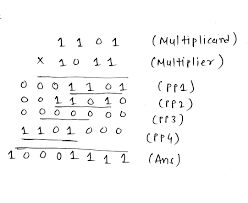 1 1 0 1 (Multiplicand)
× 1 0 1 1 (Multiplier)
0 0 0 1 1 0 1 (PP1)
0 0 1 1 0 1 0 (PP2)
0 0 0 0 0 0 0 (PP3)
1 1 0 1 0 0 0 (PP4)
1 0 0 0 1 1 1 1 (Ans)